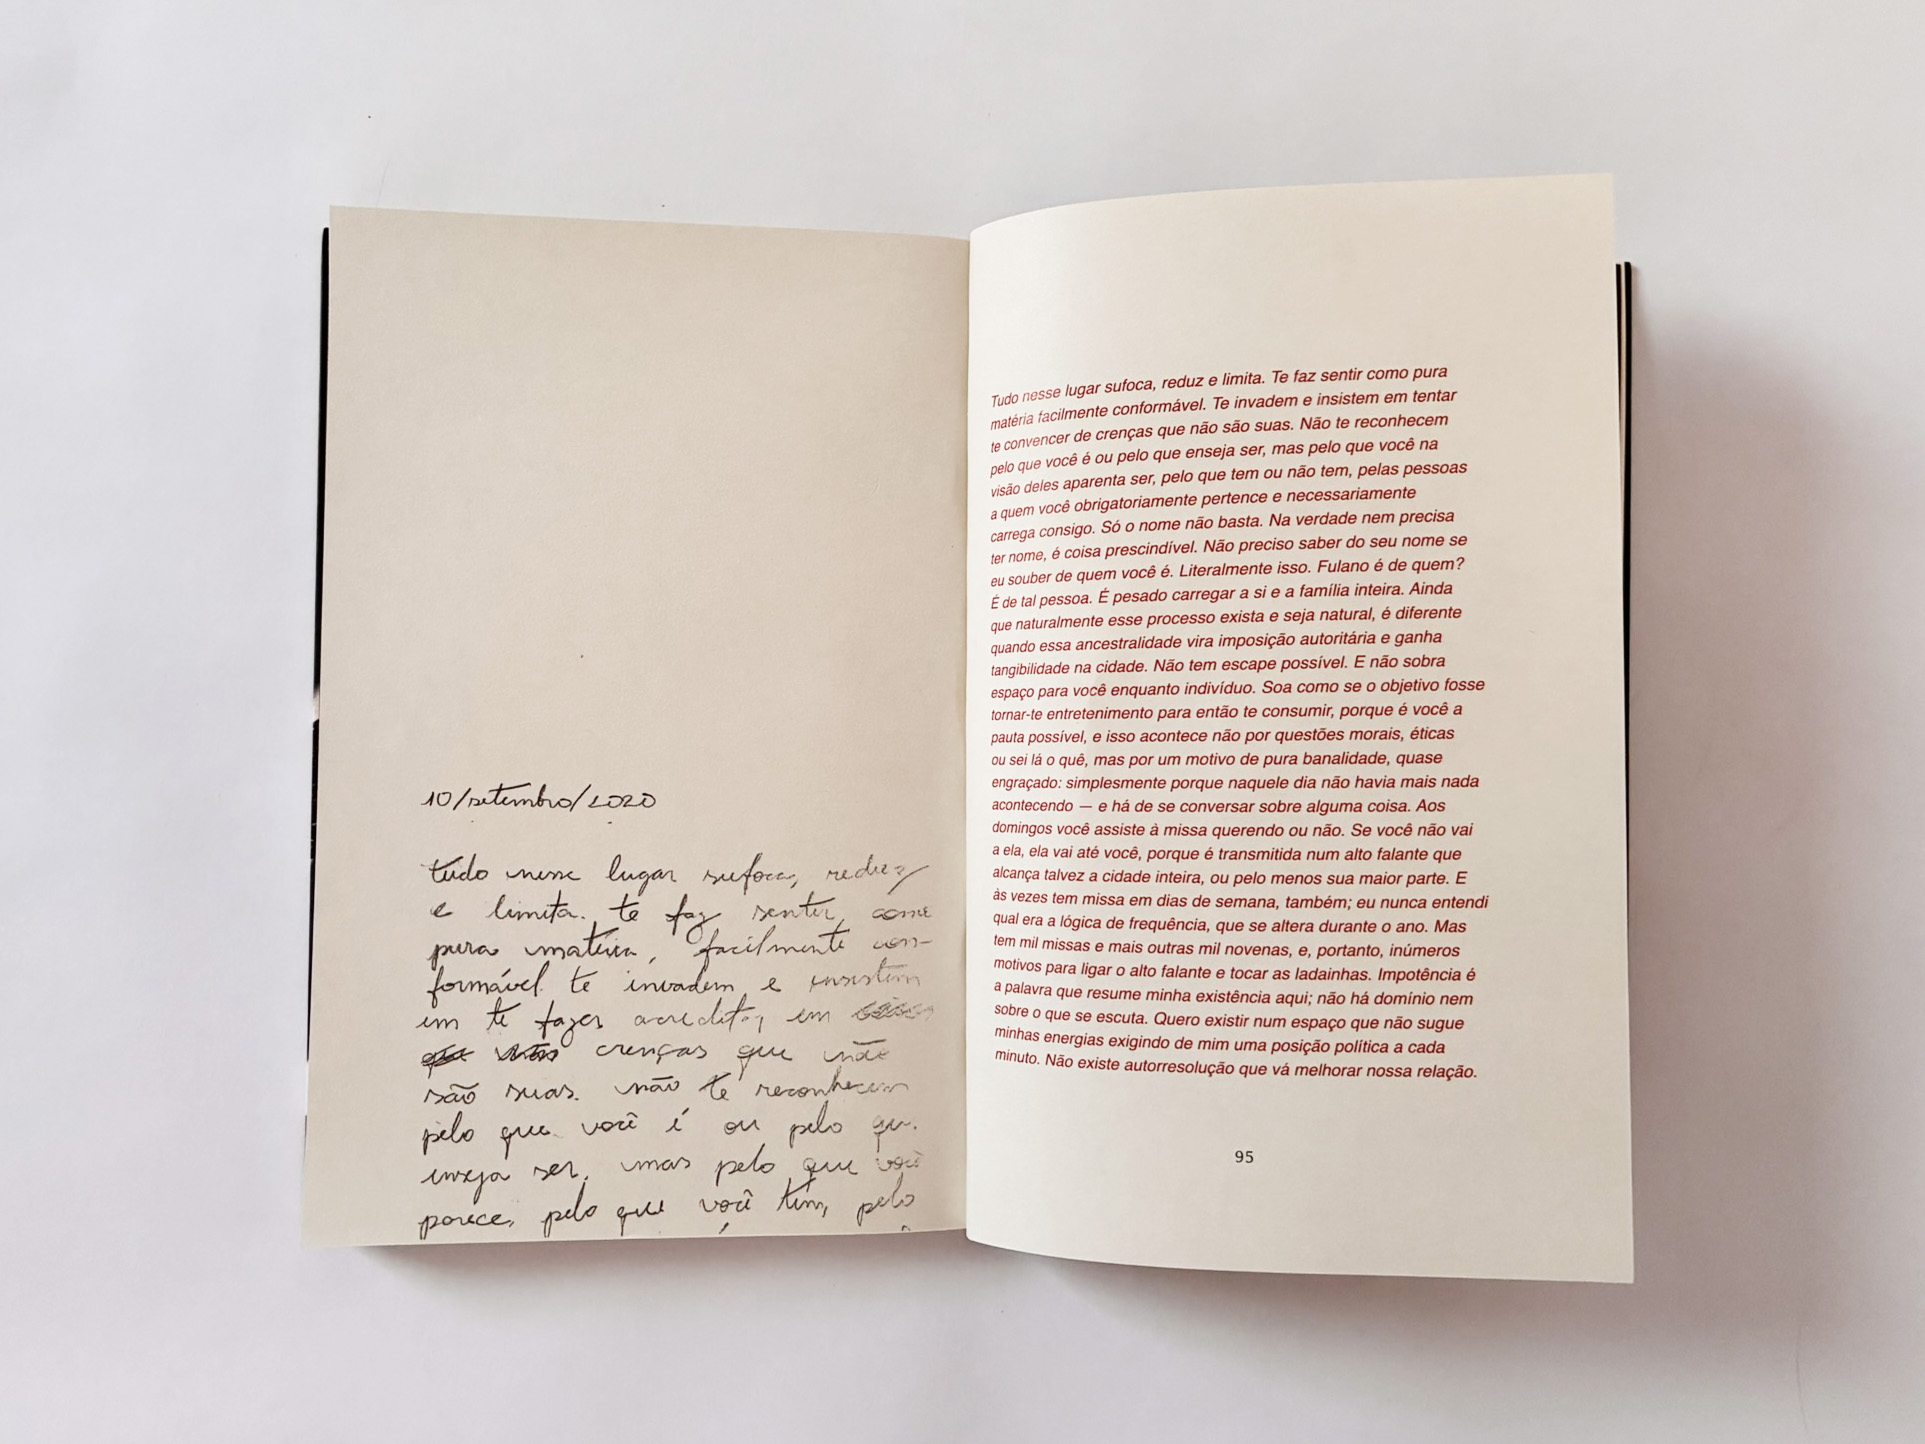 10/setembro/2020
tudo nesse lugar sufoca, reduz
e limita. te faz sentir, como
pura matéria, facilmente con-
formável. te invadem e insistem
em te fazer acreditar em
crenças que não
são suas. não te reconhecem
pelo que você é ou pelo que
enseja ser, mas pelo que você
parece, pelo que você tem, pelo
Tudo nesse lugar sufoca, reduz e limita. Te faz sentir como pura
matéria facilmente conformável. Te invadem e insistem em tentar
te convencer de crenças que não são suas. Não te reconhecem
pelo que você é ou pelo que enseja ser, mas pelo que você na
visão deles aparenta ser, pelo que tem ou não tem, pelas pessoas
a quem você obrigatoriamente pertence e necessariamente
carrega consigo. Só o nome não basta. Na verdade nem precisa
ter nome, é coisa prescindível. Não preciso saber do seu nome se
eu souber de quem você é. Literalmente isso. Fulano é de quem?
É de tal pessoa. É pesado carregar a si e a família inteira. Ainda
que naturalmente esse processo exista e seja natural, é diferente
quando essa ancestralidade vira imposição autoritária e ganha
tangibilidade na cidade. Não tem escape possível. E não sobra
espaço para você enquanto indivíduo. Soa como se o objetivo fosse
tornar-te entretenimento para então te consumir, porque é você a
pauta possível, e isso acontece não por questões morais, éticas
ou sei lá o quê, mas por um motivo de pura banalidade, quase
engraçado: simplesmente porque naquele dia não havia mais nada
acontecendo — e há de se conversar sobre alguma coisa. Aos
domingos você assiste à missa querendo ou não. Se você não vai
a ela, ela vai até você, porque é transmitida num alto falante que
alcança talvez a cidade inteira, ou pelo menos sua maior parte. E
às vezes tem missa em dias de semana, também; eu nunca entendi
qual era a lógica de frequência, que se altera durante o ano. Mas
tem mil missas e mais outras mil novenas, e, portanto, inúmeros
motivos para ligar o alto falante e tocar as ladainhas. Impotência é
a palavra que resume minha existência aqui; não há domínio nem
sobre o que se escuta. Quero existir num espaço que não sugue
minhas energias exigindo de mim uma posição política a cada
minuto. Não existe autorresolução que vá melhorar nossa relação.
95